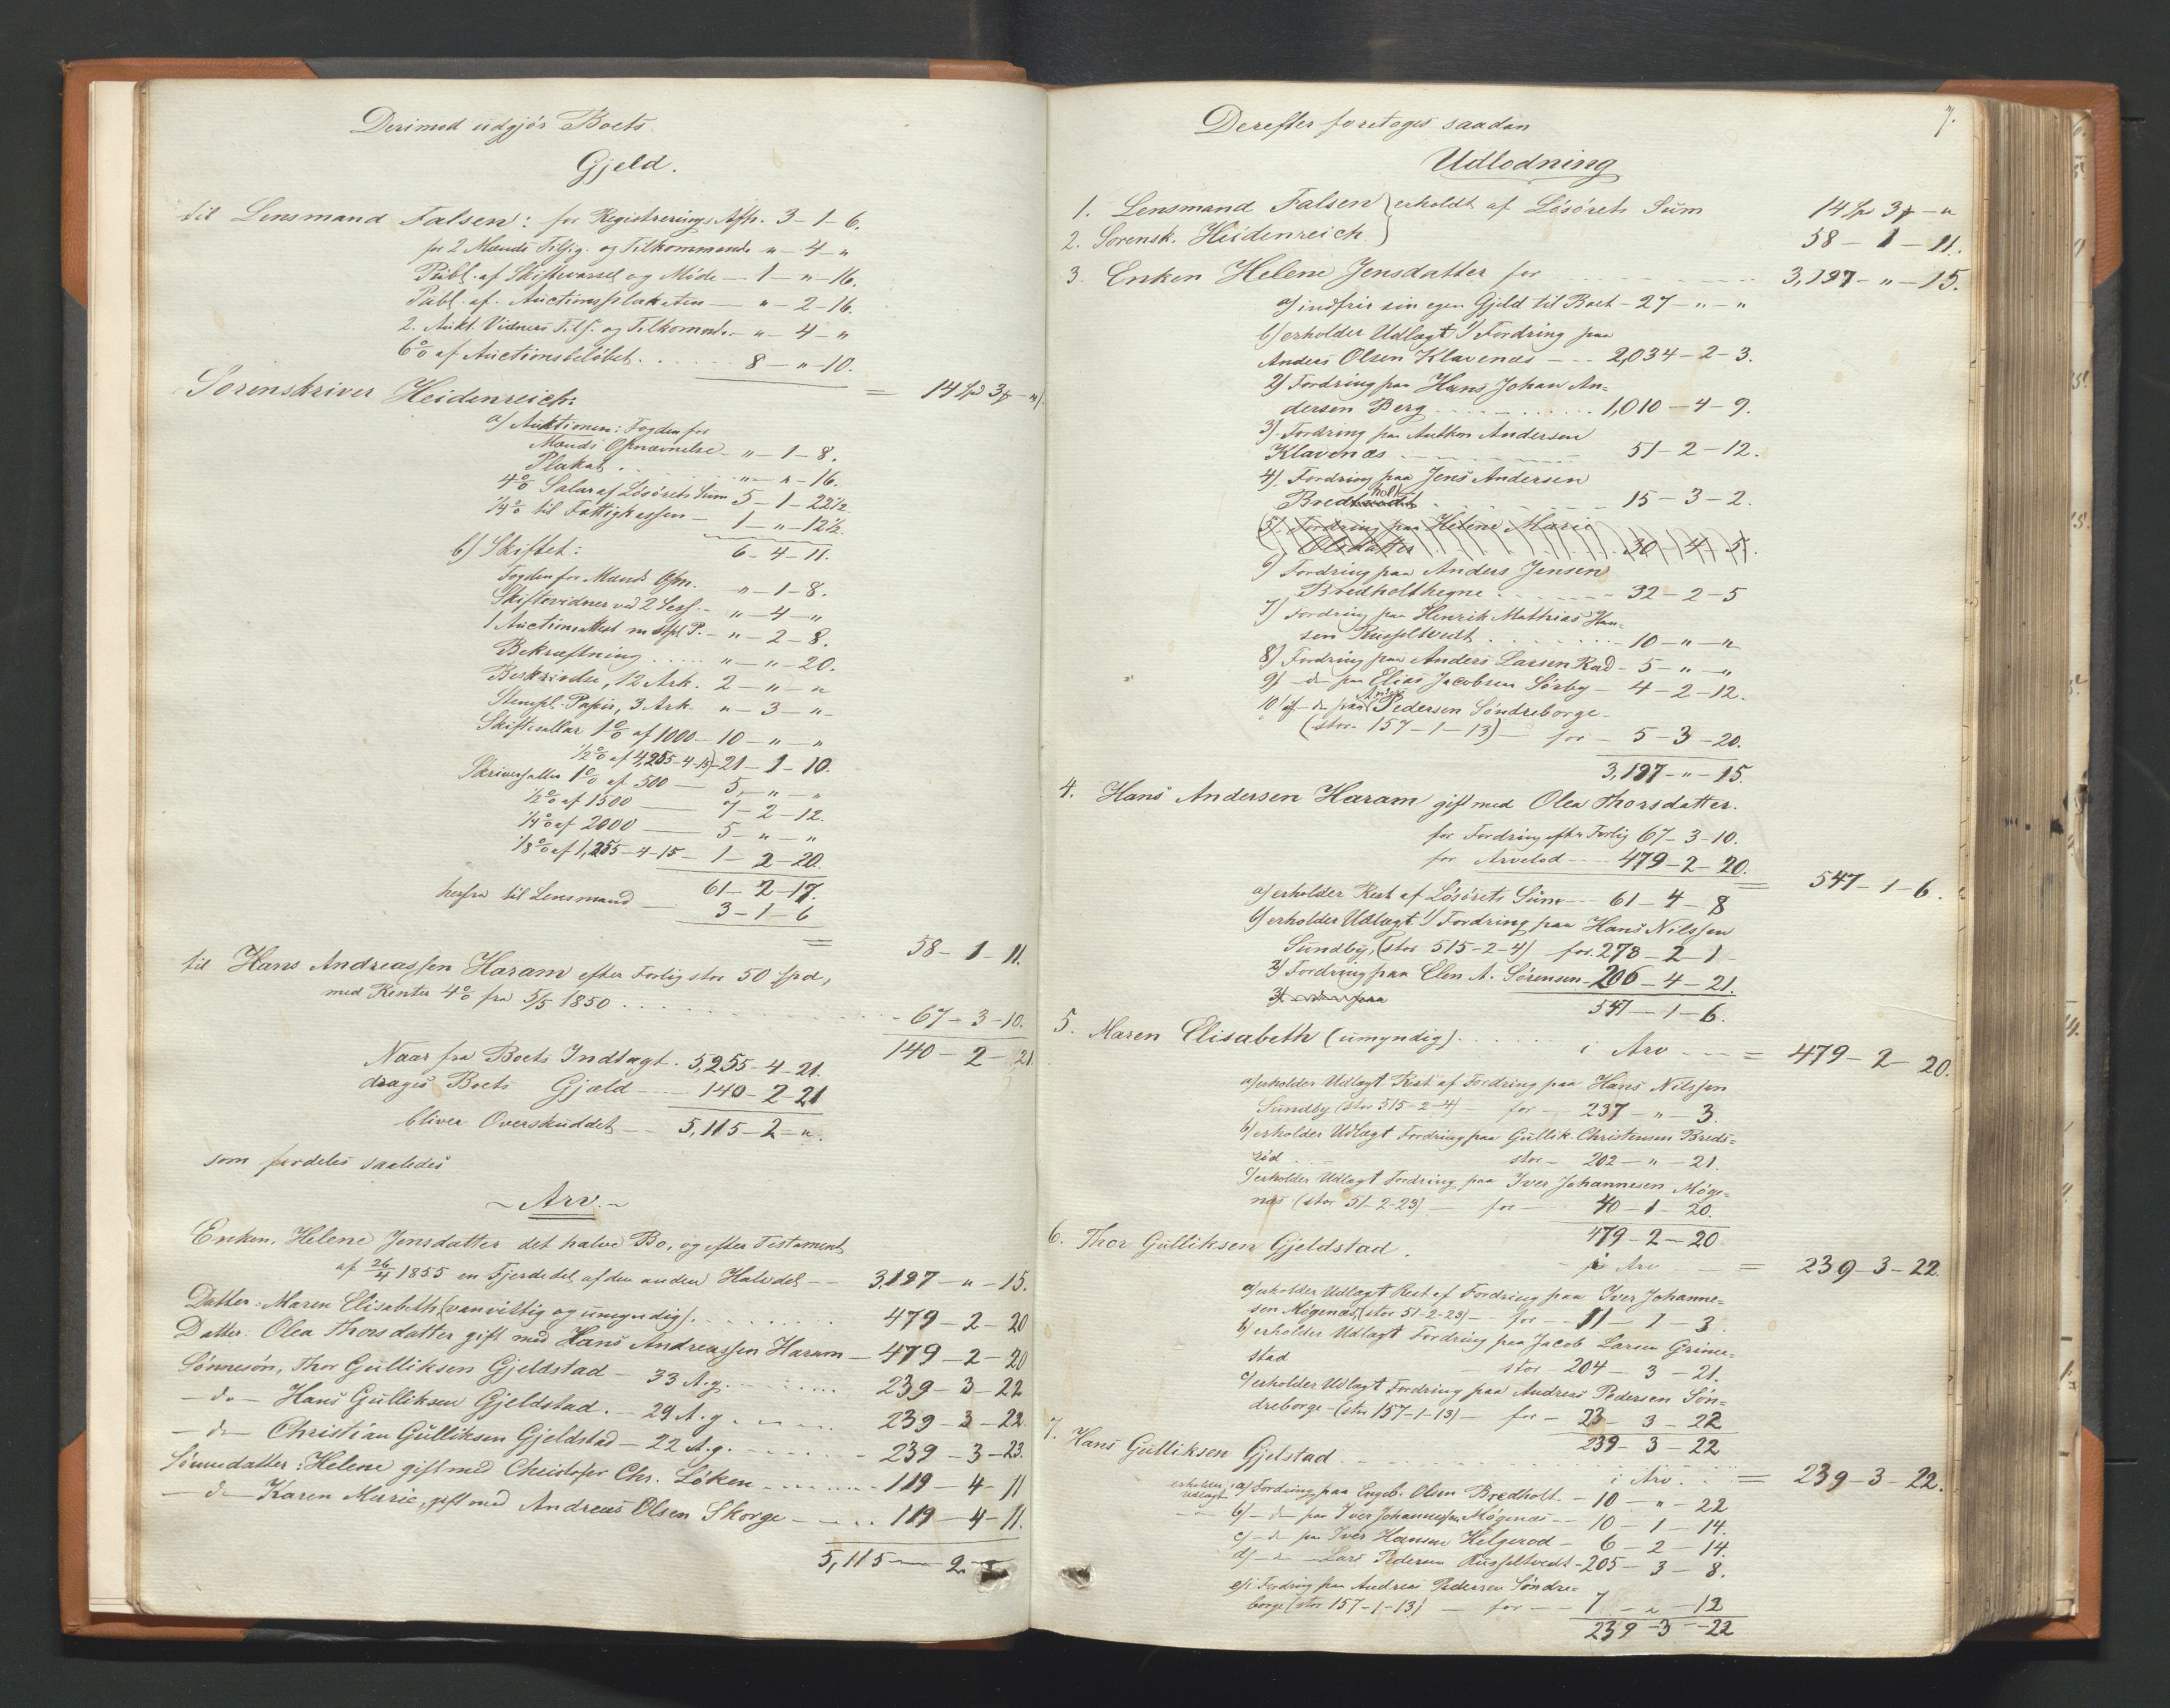 Derimod udgjør Boets
Gjeld.
til Lensmand Falsen: for Registrerings Afh. 3-1-6.
for 2 Mænds Tilsig. og Tilkommende " - 4 - "
Publ. af Skiftevarsel og Møde — 1 - " - 16.
Publ. af Auctionsplakaten — " - 2 - 16.
2. Aukt. Vidners Tils. og Tilkommde. - " - 4 - "
6% af Auctionsbeløbet . . . . . 8 - " - 10.
= 14 Spd 3 - "
Sorenskriver Heidenreich:
a) Auktionen: Fogden for
Mænds Opnævnelse - " - 1 - 8.
Plakat . . . " - " - 16.
4% Salar af Løsørets Sum 5 - 1 - 22½
¼% til Fattigkassen - 1 - " - 12½.
6 - 4 - 11.
b) Skiftet:
Fogden for Mænds Opn. " - 1 - 8.
Skiftevidner ved 2 Sess. - " - 4 - "
1 Auctionsattest m stpl P. - " - 2 - 8.
Bekræftning . . . . . " - " - 20.
Beskrivelse, 12 Ark. 2 - " - "
Stempl. Papir, 3 Ark " - 3 - "
Skiftesallar 1% af 1000 - 10 - " - "
½% af 4,255-4-15) - 21 - 1 - 10.
Skriversallar 1% af 500 — 5 - " - "
½% af 1500 — 7 - 2 - 12.
¼% af 2000 — 5 - " - "
⅛% af 1,255-4-15 - 1 - 2 - 20.
61 - 2 - 17.
herfra til Lensmand — 3 - 1 - 6
= 58 - 1 - 11.
til Hans Andreassen Haram efter Forlig stor 50 Spd,
med Renter 4% fra 5/5 1850 . . . . . - 67 - 3 - 10.
140 - 2 - 21
Naar fra Boets Indtægt . 5,255 - 4 - 21.
drages Boets Gjæld — 140 - 2 - 21
bliver Overskuddet — 5,115 - 2 - ".
som fordeles saaledes
~ Arv. ~
Enken, Helene Jensdatter det halve Bo, og efter Testament
af 26/4 1855 en Fjerdedel af den anden Halvdel — 3,197 - " - 15.
Datter: Maren Elisabeth (vanvittig og umyndig) . . . 479 - 2 - 20
Datter: Olea Thorsdatter gift med Hans Andreassen Haram — 479 - 2 - 20
Sønnesøn, Thor Gulliksen Gjeldstad - 33 A. g. . . . 239 - 3 - 22
- do - Hans Gulliksen Gjeldstad. - 29 A. g. . . . 239 - 3 - 22.
- do - Christian Gulliksen Gjeldstad - 22 A. g. . . . 239 - 3 - 23.
Sønnedatter: Helene gift med Christofer Chr. Løken . . . 119 - 4 - 11
- do - Karen Marie, gift med Andreas Olsen Skorge — . . 119 - 4 - 11.
5,115 — 2 - "
7.
Derefter foretoges saadan
Udlodning
1. Lensmand Falsen } erholdt af Løsørets Sum 14 Spd 3 - "
2. Sorensk. Heidenreich } 58 - 1 - 11.
3. Enken Helene Jensdatter for . . . 3,197 - " - 15.
a) indfrir sin egen Gjeld til Boet - 27 - " - "
b) erholder Udlagt 1) Fordring paa
Anders Olsen Klavenæs — 2,034 - 2 - 3.
2) Fordring paa Hans Johan An=
dersen Berg . . . . . 1,010 - 4 - 9.
3) Fordring paa Anthon Andersen
Klavenæs . . . 51 - 2 - 12.
4) Fordring paa Jens Andersen
Bredholt . . . 15 - 3 - 2.
5) Fordring paa Helene Marie
Olsdatter . . . 30 - 4 - 5.
6) Fordring paa Anders Jensen
Bredholthegne . . . 32 - 2 - 5
7) Fordring paa Henrik Mathias Han=
sen Russeltvedt . . . 10 - " - "
8) Fordring paa Anders Larsen Rød - 5 - " - "
9) - do paa Elias Jacobsen Sørby - 4 - 2 - 12.
10) af - do paa Andrs Pedersen Søndreborge -
(stor 157-1-13) — for — 5 - 3 - 20.
3,197 - " - 15.
4. Hans Andersen Haram gift med Olea Thorsdatter.
for Fordring efter Forlig 67 - 3 - 10.
for Arvelod — 479 - 2 - 20.
= 547 - 1 - 6.
a) erholder Rest af Løsørets Sum — 61 - 4 - 8
b) erholder Udlagt 1) Fordring paa Hans Nilssen
Sundby, (stor 515-2-4) for 278 - 2 - 1
3) Fordring paa Elen A. Sørensen - 206 - 4 - 21.
3) - do paa
547 - 1 - 6.
5. Maren Elisabeth (umyndig) . . . i Arv — = 479 - 2 - 20.
a) erholder Udlagt Rest af Fordring paa Hans Nilssen
Sundby (stor 515-2-4) — for — 237 - " - 3.
b) erholder Udlagt Fordring paa Gullik Christensen Breds=
rød . . . stor - 202 - " - 21.
c) erholder Udlagt Fordring paa Iver Johannesen Møge=
næs (stor 51-2-23) — for — 40 - 1 - 20.
479 - 2 - 20
6. Thor Gulliksen Gjeldstad . - i Arv — = 239 - 3 - 22.
a) erholder Udlagt Rest af Fordring paa Iver Johanne=
sen Møgenæs, (stor 51-2-23) — for — 11 - 1 - 3.
b) erholder Udlagt Fordring paa Jacob Larsen Grime=
stad — stor - 204 - 3 - 21.
c) erholder Udlagt Fordring paa Andreas Pedersen Søn=
dreborge - (stor 157-1-13) - for - 23 - 3 - 22
239 - 3 - 22
7. Hans Gulliksen Gjelstad . . . i Arv . . = 239 - 3 - 22.
erholder Udlagt a) Fordring paa Engeb. Olsen Bredholt - 10 - " - 22
b) - do - paa Iver Johannesen Møgenæs - 10 - 1 - 14.
c) - do - paa Iver Hansen Helgerød - 6 - 2 - 14.
d) - do - Lars Pedersen Russeltvedt - 205 - 3 - 8.
e) i Fordring paa Andrea Pedersen Søndre=
borge (stor 157-1-13) — for — 7 - " - 12
239 - 3 - 22